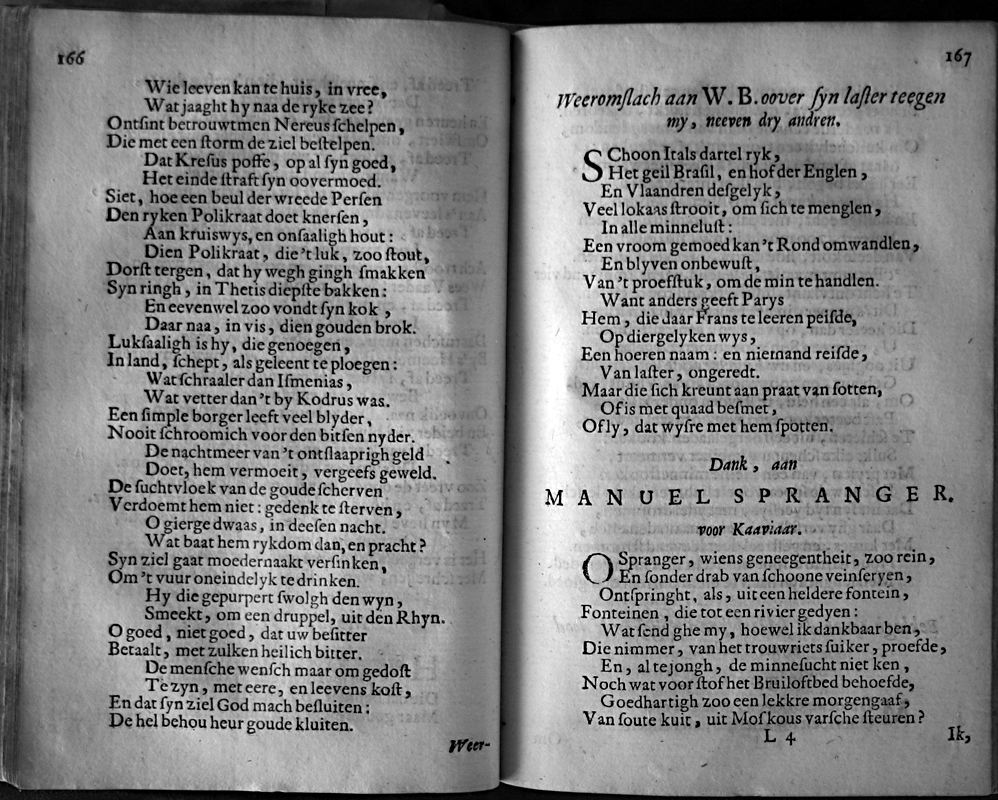 166
Wie leeven kan te huis, in vree,
Wat jaaght hy naa de ryke zee?
Ontsint betrouwtmen Nereus schelpen,
Die met een storm de ziel bestelpen.
Dat Kresus poffe, op al syn goed,
Het einde straft syn oovermoed.
Siet, hoe een beul der wreede Persen
Den ryken Polikraat doet knersen,
Aan kruiswys, en onsaaligh hout:
Dien Polikraat, die 't luk, zoo stout,
Dorst tergen, dat hy wegh gingh smakken
Syn ringh, in Thetis diepste bakken:
En eevenwel zoo vondt syn kok,
Daar naa, in vis, dien gouden brok.
Luksaaligh is hy, die genoegen,
In land, schept, als geleent te ploegen:
Wat schraaler dan Ismenias,
Wat vetter dan 't by Kodrus was.
Een simple borger leeft veel blyder,
Nooit schroomich voor den bitsen nyder.
De nachtmeer van 't ontslaaprigh geld
Doet, hem vermoeit, vergeefs geweld.
De suchtvloek van de goude scherven
Verdoemt hem niet: gedenk te sterven,
O gierge dwaas, in deesen nacht.
Wat baat hem rykdom dan, en pracht?
Syn ziel gaat moedernaakt versinken,
Om 't vuur oneindelyk te drinken.
Hy die gepurpert swolgh den wyn,
Smeekt, om een druppel, uit den Rhyn.
O goed, niet goed, dat uw besitter
Betaalt, met zulken heilich bitter.
De mensche wensch maar om gedost
Te zyn, met eere, en leevens kost,
En dat syn ziel God mach besluiten:
De hel behou heur goude kluiten.
Weer-
167
Weeromslach aan W. B. oover syn laster teegen
my, neeven dry andren.
SChoon Itals dartel ryk,
Het geil Brasil, en hof der Englen,
En Vlaandren desgelyk,
Veel lokaas strooit, om sich te menglen,
In alle minnelust:
Een vroom gemoed kan 't Rond omwandlen,
En blyven onbewust,
Van 't proefstuk, om de min te handlen.
Want anders geeft Parys
Hem, die daar Frans te leeren peisde,
Op diergelyken wys,
Een hoeren naam: en niemand reisde,
Van laster, ongeredt.
Maar die sich kreunt aan praat van sotten,
Of is met quaad besmet,
Of ly, dat wysre met hem spotten.
Dank, aan
MANUEL SPRANGER.
voor Kaaviaar.
O Spranger, wiens geneegentheit, zoo rein,
En sonder drab van schoone veinseryen,
Ontspringht, als, uit een heldere fontein,
Fonteinen, die tot een rivier gedyen:
Wat send ghe my, hoewel ik dankbaar ben,
Die nimmer, van het trouwriets suiker, proefde,
En, al te jongh, de minnesucht niet ken,
Noch wat voor stof het Bruiloftbed behoefde,
Goedhartigh zoo een lekkre morgengaaf,
Van soute kuit, uit Moskous varsche steuren?
L 4
Ik,